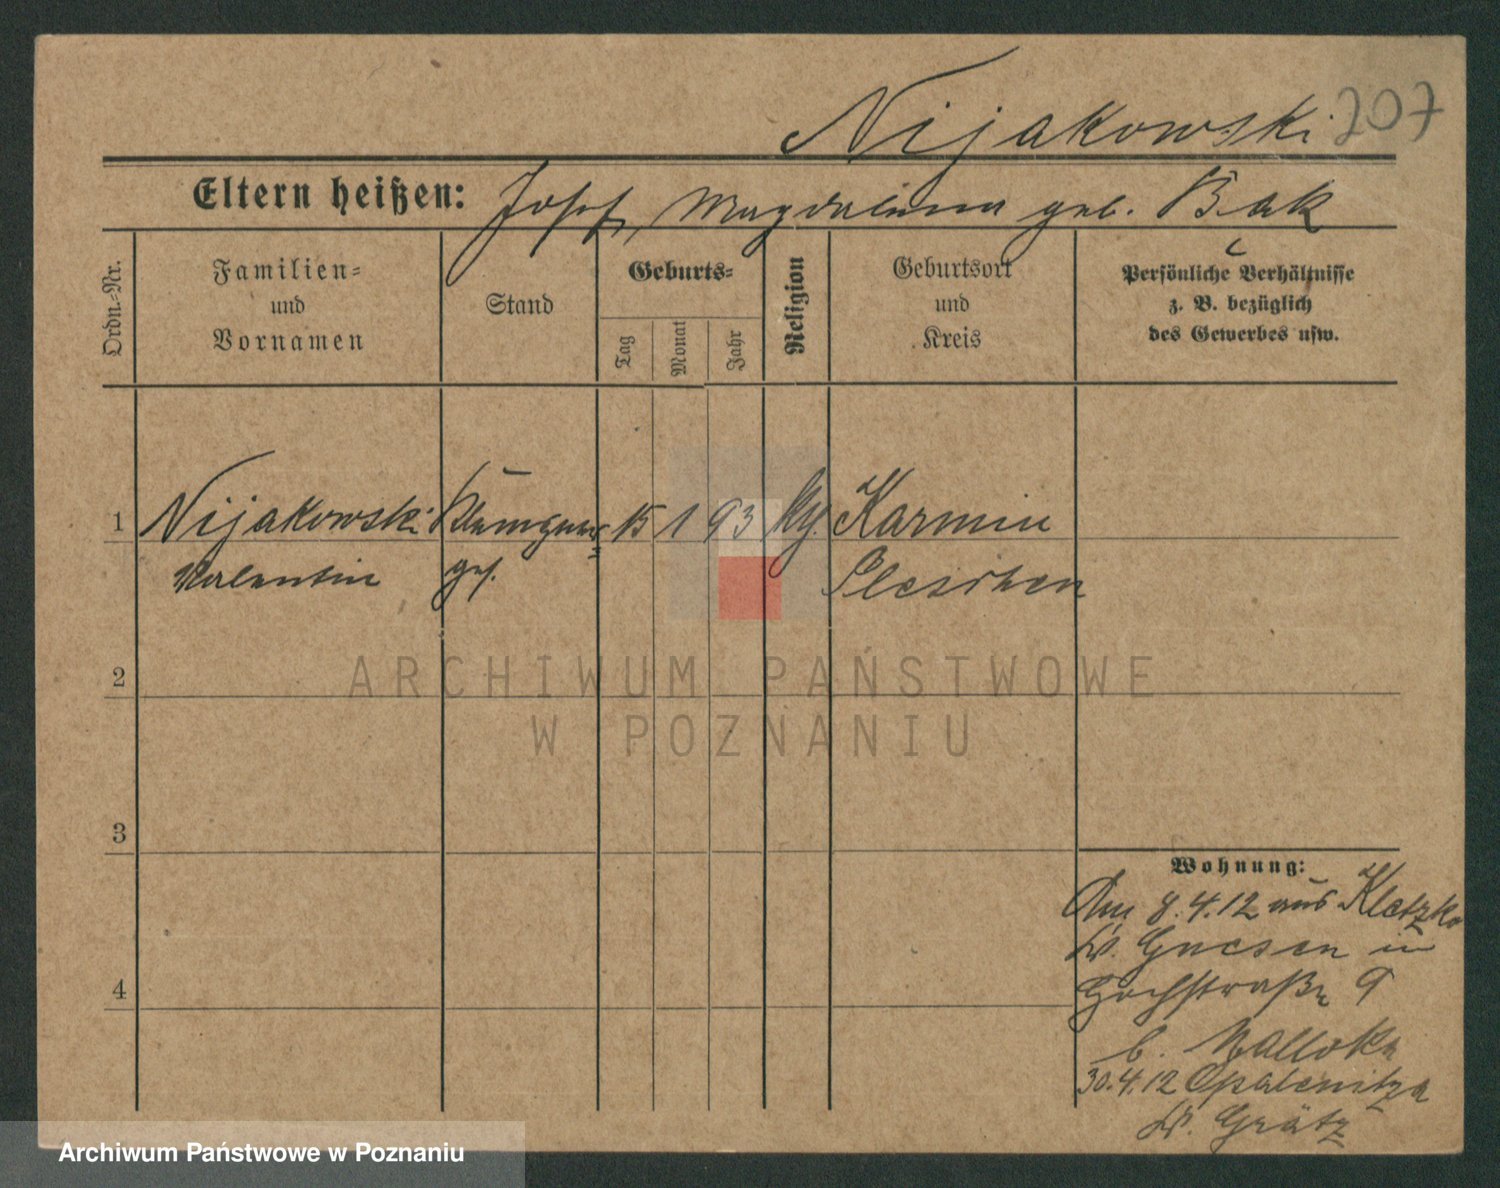 Nijakowski 207
Eltern heißen: Josef, Magdalena geb. Bak
Ordn.-Nr.
Familien-
und
Vornamen
Stand
Geburts-
Tag
Monat
Jahr
Religion
Geburtsort
und
Kreis
Persönliche Verhältnisse
z. B. bezüglich
des Gewerbes usw.
1 Nijakowski 15 1 93 Karmin
Valentin ges. Pleschen
2
3
4
Wohnung:
Am 8.4.12 aus Kletzko
Kr. Gnesen in
Hochstraße 9
b.
30.4.12 Opalenitza
Kr. Grätz
ARCHIWUM PAŃSTWOWE
W POZNANIU
Archiwum Państwowe w Poznaniu